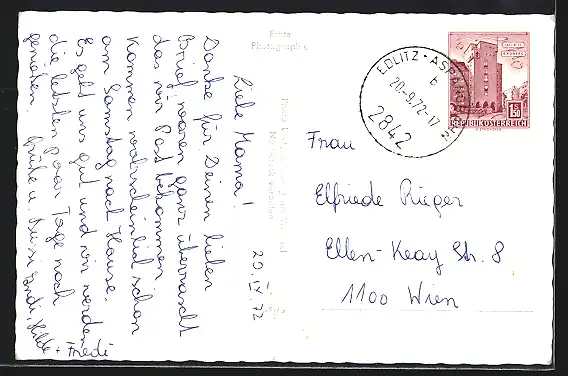 20.IX.72
Liebe Mama!
Danke für Deinen lieben
Brief, waren ganz überrascht
das wir Post bekommen.
Kommen warscheinlich schon
am Samstag nach Hause.
Es geht uns gut und wir werden
die letzten paar Tage noch
genießen. Grüße u. Bussi Andi, Hilde
+ Friedi
Echte
Photographie
EDLITZ-ASPANG
b
20.-9.72-17
2842
S 1.50
REPUBLIK ÖSTERREICH
Frau
Elfriede Rieger
Ellen-Keay Str. 8
1100 Wien